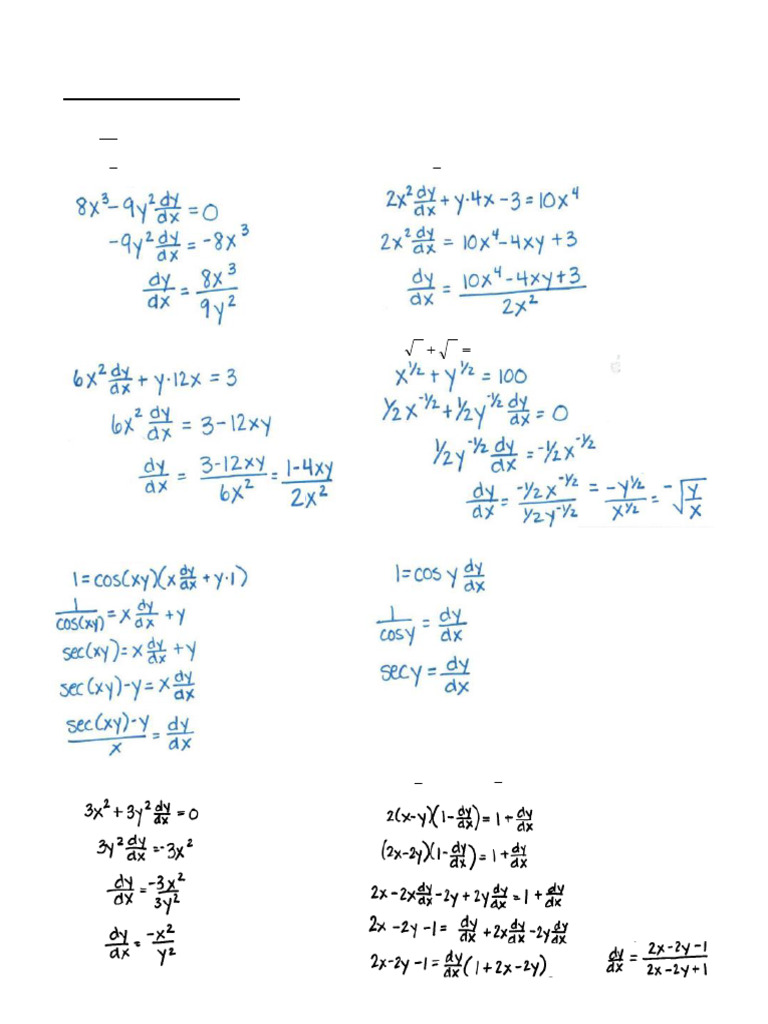 8x³ - 9y² dy/dx = 0
-9y² dy/dx = -8x³
dy/dx = 8x³/9y²
2x² dy/dx + y·4x - 3 = 10x⁴
2x² dy/dx = 10x⁴ - 4xy + 3
dy/dx = (10x⁴ - 4xy + 3)/2x²
6x² dy/dx + y·12x = 3
6x² dy/dx = 3 - 12xy
dy/dx = (3 - 12xy)/6x² = (1 - 4xy)/2x²
√ + √ =
x^(1/2) + y^(1/2) = 100
1/2x^(-1/2) + 1/2y^(-1/2) dy/dx = 0
1/2y^(-1/2) dy/dx = -1/2x^(-1/2)
dy/dx = (-1/2x^(-1/2))/(1/2y^(-1/2)) = -y^(1/2)/x^(1/2) = -√(y/x)
1 = cos(xy)(x dy/dx + y·1)
1/cos(xy) = x dy/dx + y
sec(xy) = x dy/dx + y
sec(xy) - y = x dy/dx
(sec(xy) - y)/x = dy/dx
1 = cos y dy/dx
1/cos y = dy/dx
sec y = dy/dx
3x² + 3y² dy/dx = 0
3y² dy/dx = -3x²
dy/dx = -3x²/3y²
dy/dx = -x²/y²
2(x-y)(1 - dy/dx) = 1 + dy/dx
(2x-2y)(1 - dy/dx) = 1 + dy/dx
2x - 2x dy/dx - 2y + 2y dy/dx = 1 + dy/dx
2x - 2y - 1 = dy/dx + 2x dy/dx - 2y dy/dx
2x - 2y - 1 = dy/dx (1 + 2x - 2y)
dy/dx = (2x - 2y - 1)/(2x - 2y + 1)